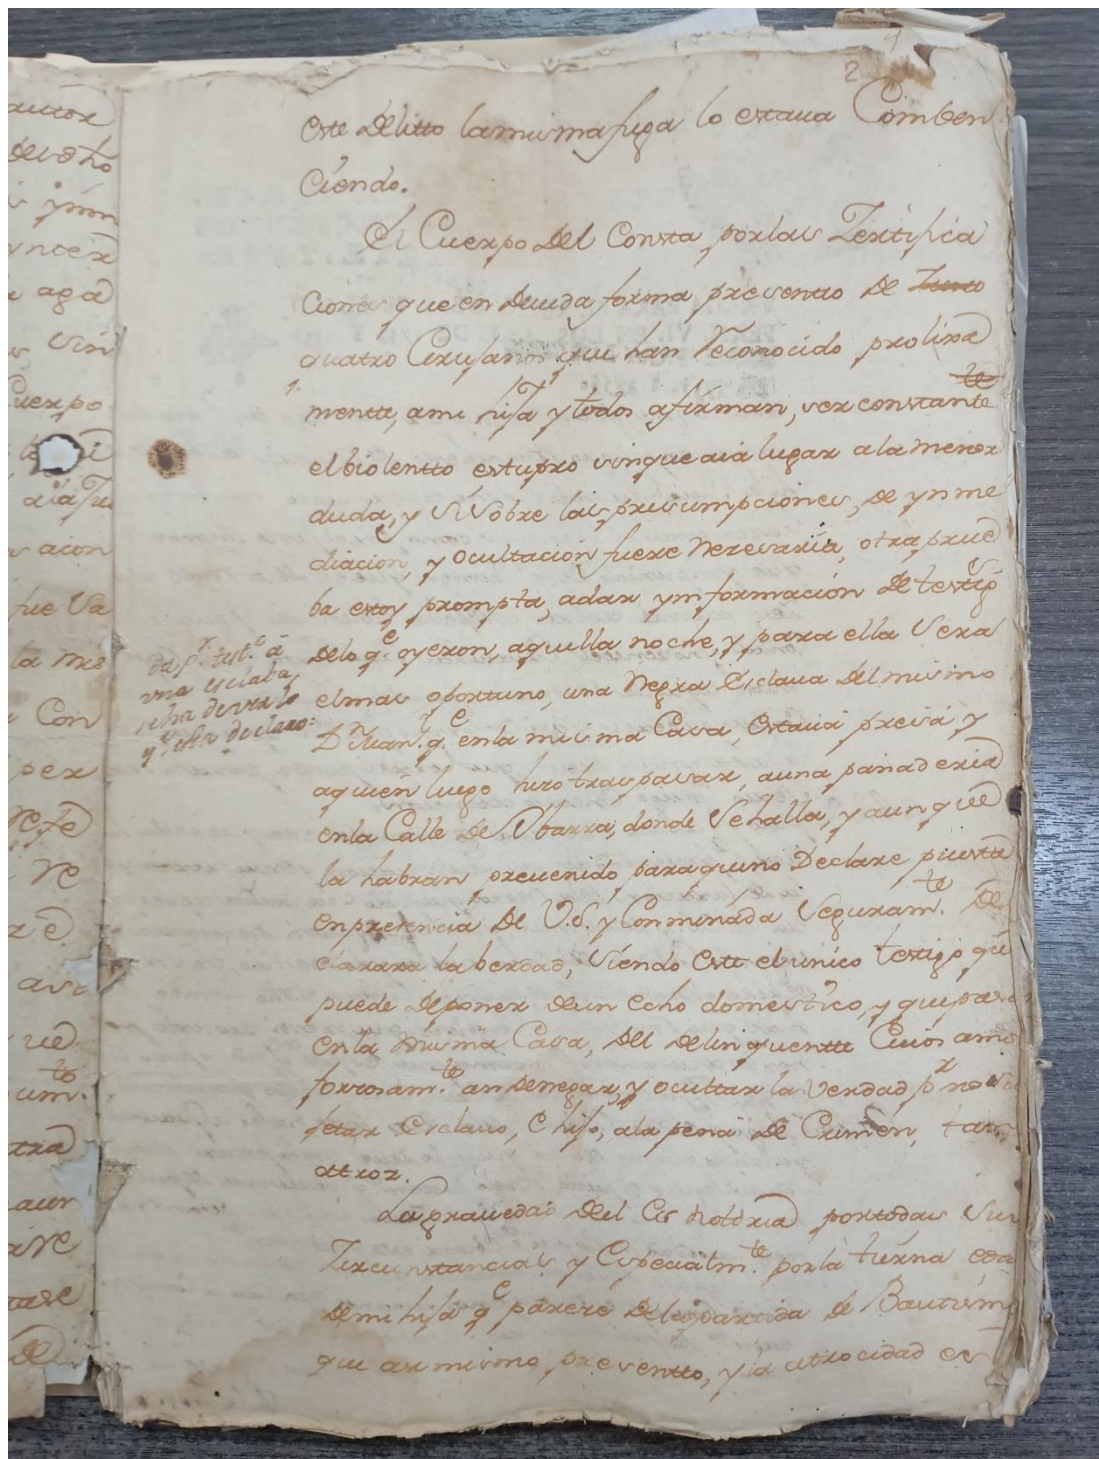 2
este Delitto la misma fuga lo estava Comben
Ciendo.
El Cuerpo del Consta por las Zertifica
ciones que en Devida forma presentto de
quatro Cirujanos que han Reconocido prolixa
mentte, a mi hija y todos afirman, ser constante
el biolentto estupro sin que aia lugar a la menor
duda, y si sobre las presumpciones, de ynme
diacion, y ocultacion fuere Nesesaria, otra prue
ba estoy prompta, a dar ynformacion de testigos
de lo q.e oyeron, aquella noche, y para ella sera
el mas oportuno, una Negra Esclava del mismo
D.n Juan. q.e en la misma Casa, Estava presa y
a quien luego hizo traspasar, a una panaderia
en la Calle de Ybarra, donde se halla, y aunque
la habran prevenido para que no Declare puesta
en presencia de V.S. y Conminada seguram.te De
clarara la berdad, siendo este el unico testigo que
puede deponer de un echo domestico, y que paso
en la misma Casa, del delinquentte Cuios amos
forzosam.te an de negar, y ocultar la verdad p.r no
jetar Esclavo, e hijo, a la pena de Crimen, tan
atroz.
La gravedad del Es notoria por todas sus
Zircunstancias y Especialm.te por la tierna eda
de mi hija q.e parese de la partida de Bautismo
que asi mismo presentto, y la atrocidad es
da p.r test.o á
una esclaba,
y.e esta declare:
autor
ynter
aga
sin
Cuerpo
a la Ju
acion
fue Sa
Con
per
Re